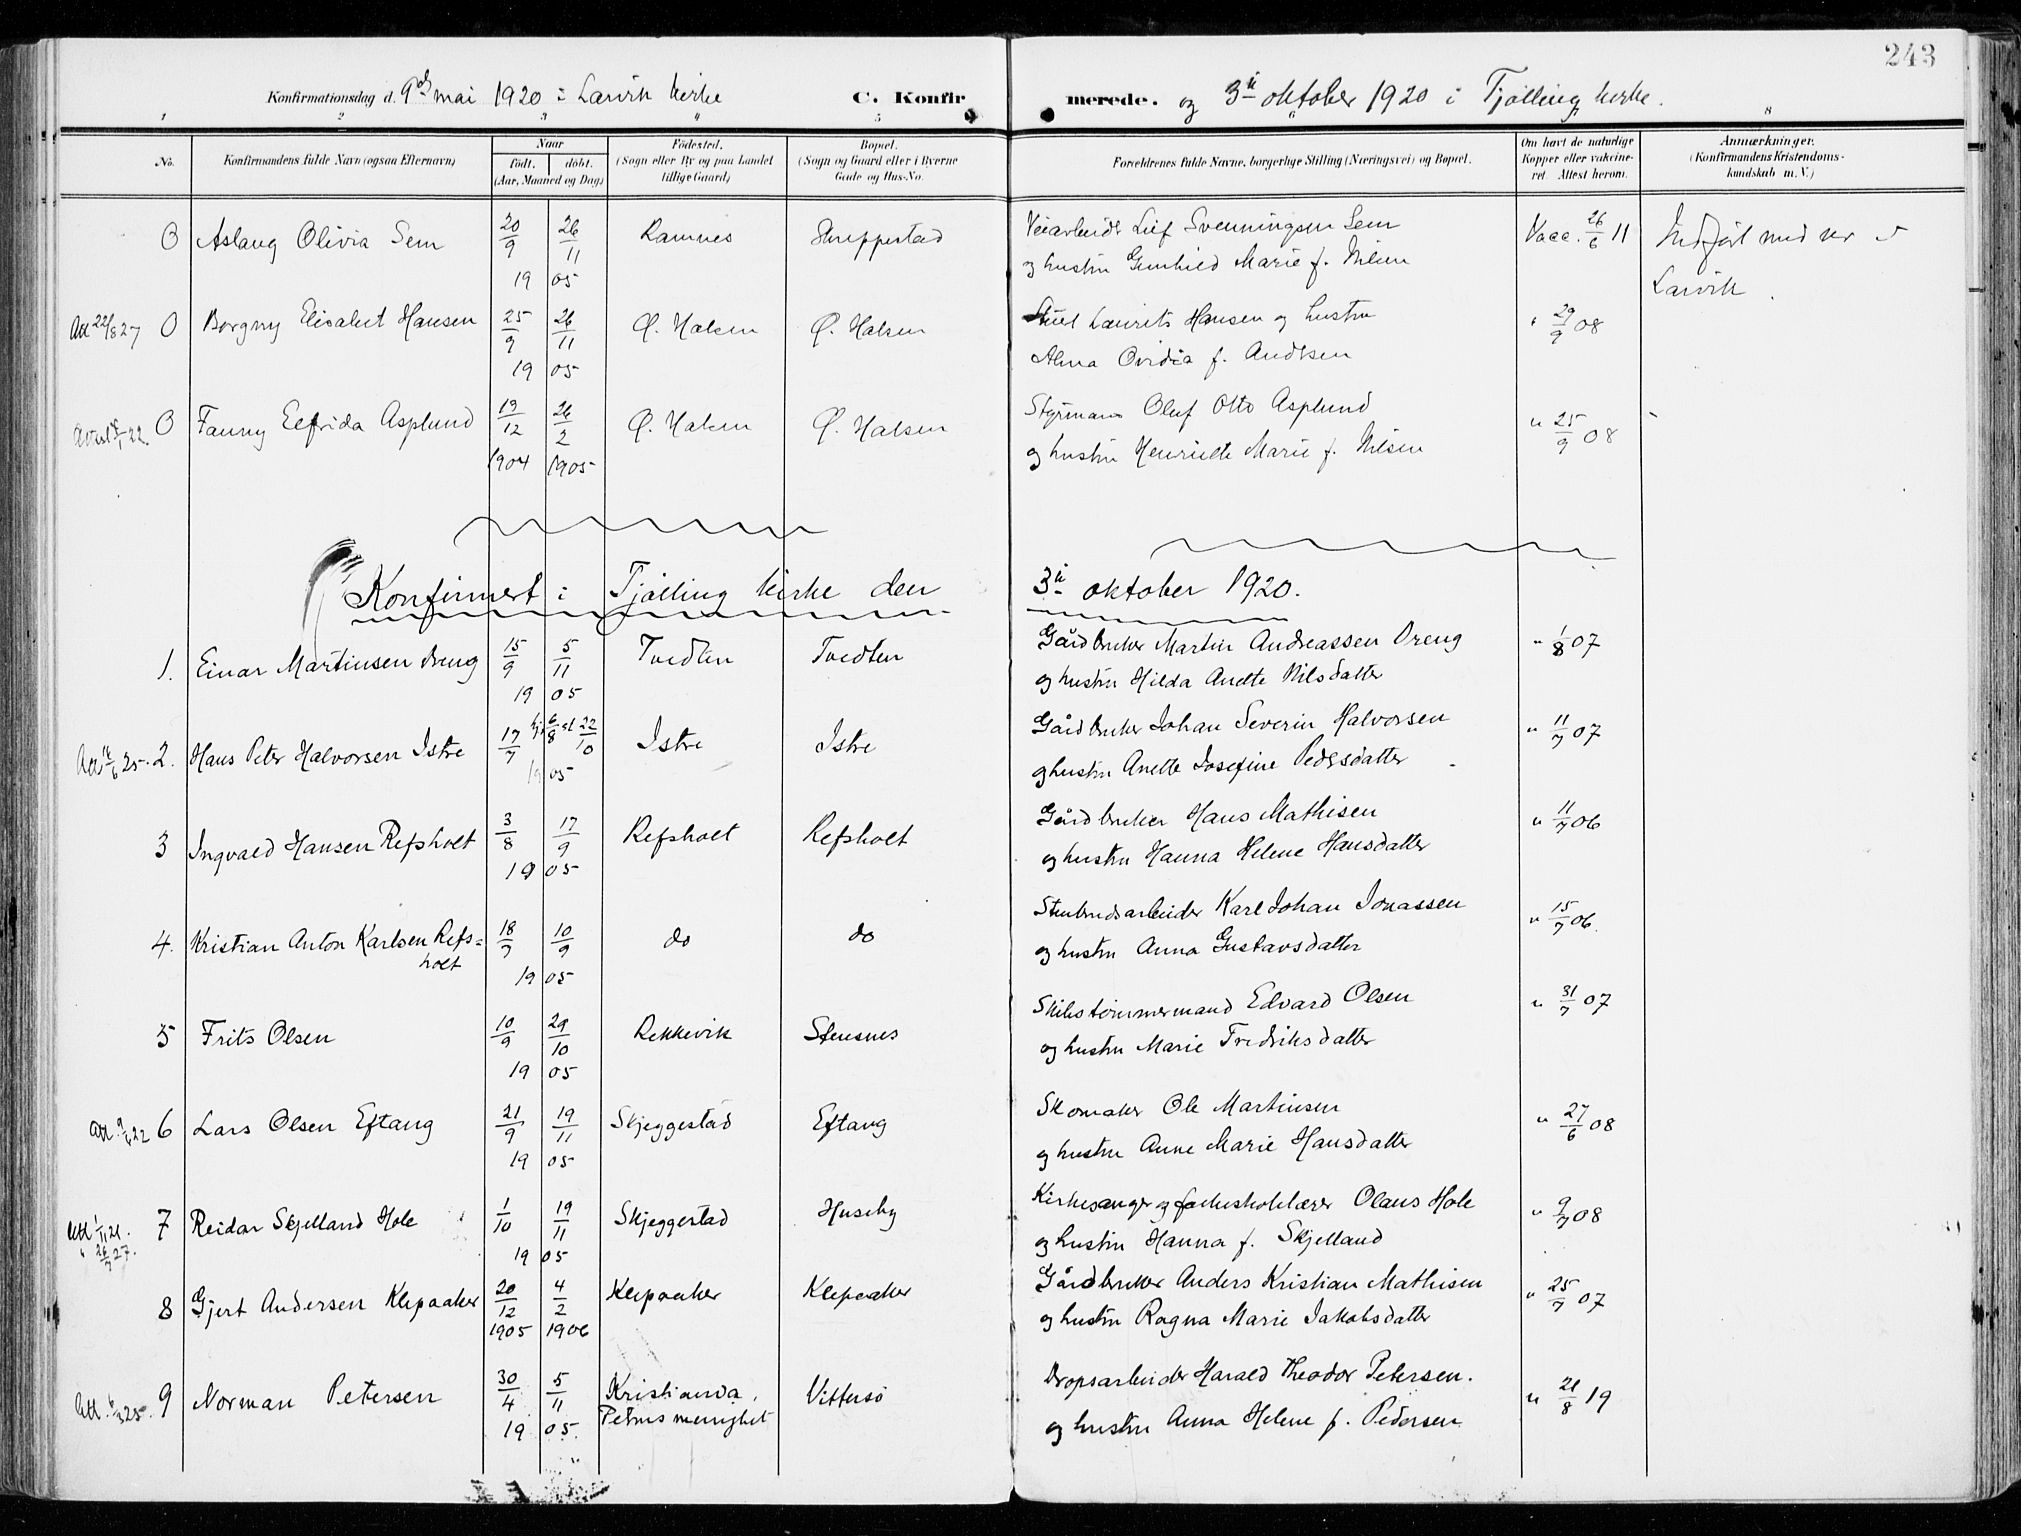 243
Konfirmationsdag d. 9de mai 1920 i Larvik kirke C. Konfirmerede. og 3die oktober 1920 i Tjølling kirke.
1 2 3 4 5 6 7 8
No. Konfirmandens fulde Navn (ogsaa Efternavn) Naar født. døbt. (Aar, Maaned og Dag) Fødested. (Sogn eller By og paa Landet tillige Gaard) Bopæl. (Sogn og Gaard eller i Byerne Gade og Hus-No.
Forældrenes fulde Navne, borgerlige Stilling (Næringsvei) og Bopæl. Om havt de naturlige Kopper eller vakcineret. Attest herom. Anmærkninger. (Konfirmandens Kristendomskundskab m. V.)
0 Aslaug Olivia Sem 20/9 26/11 Ramnes Veiarbeider Leif Svenningsen Sem Vacc. 26/6 11
19 05 og hustru Gunhild Marie f. Nilsen
Larvik
Att 22/8 27 0 Borgny Elisabet Hansen 25/9 26/11 Ø. Halsen Ø. Halsen Laurits Hansen og hustru " 29/9 08
19 05 Alma Ovidia f. Andersen
22. 0 Fanny Elfrida Asplund 19/12 26/2 Ø. Halsen Ø. Halsen Styrmann Oluf Otto Asplund " 25/9 08
1904 1905 og hustru Henriette Marie f. Nilsen
Konfirmert i Tjølling kirke den 3die oktober 1920.
1. Einar Martinsen Dreng 15/9 5/11 Tvedten Tvedten Gårdbruker Martin Andreassen Dreng " 1/8 07
19 05 og hustru Hilda Andte Nilsdatter
Att 16/6 25. 2. Hans Peter Halvorsen Istre 17/7 hj 6/8 st 22/10 Istre Istre Gårdbruker Johan Severin Halvorsen " 11/7 07
19 05 og hustru Anette Josefine Pedersdatter
3 Ingvald Hansen Refsholt 3/8 17/9 Refsholt Refsholt Gårdbruker Hans Mathisen " 11/7 06
19 05 og hustru Hanna Helene Hansdatter
4. Kristian Anton Karlsen Refs= 18/7 10/9 do do Stenbrudsarbeider Karl Johan Jonassen " 15/7 06.
holt 19 05 og hustru Anna Gustavsdatter
5 Frits Olsen 10/9 29/10 Rekkevik Stensnes Skibstømmermand Edvard Olsen " 31/7 07
19 05 og hustru Marie Fredriksdatter
Att. 22 6 Lars Olsen Eftang 21/9 19/11 Skjeggestad Eftang Skomaker Ole Martinsen " 27/6 08
19 05 og hustru Anne Marie Hansdatter
Att 1/11 21. 7 Reidar Skjelland Hole 1/10 19/11 Skjeggestad Huseby Kirkesanger og folkeskolelærer Olaus Hole " 9/7 08
" 26/7 27. 19 05 og hustru Hanna f. Skjelland
8 Gjert Andersen Klepaaker 20/12 4/2 Klepaaker Klepaaker Gårdbruker Anders Kristian Mathisen " 25/7 07
1905 1906 og hustru Ragna Marie Jakobsdatter
Att. 6/3 25. 9 Norman Petersen 30/4 5/11 Kristiania, Vittersø Dropsarbeider Harald Theodor Petersen. " 21/8 19
19 05. Petrus menighet og hustru Anna Helene f. Pedersen